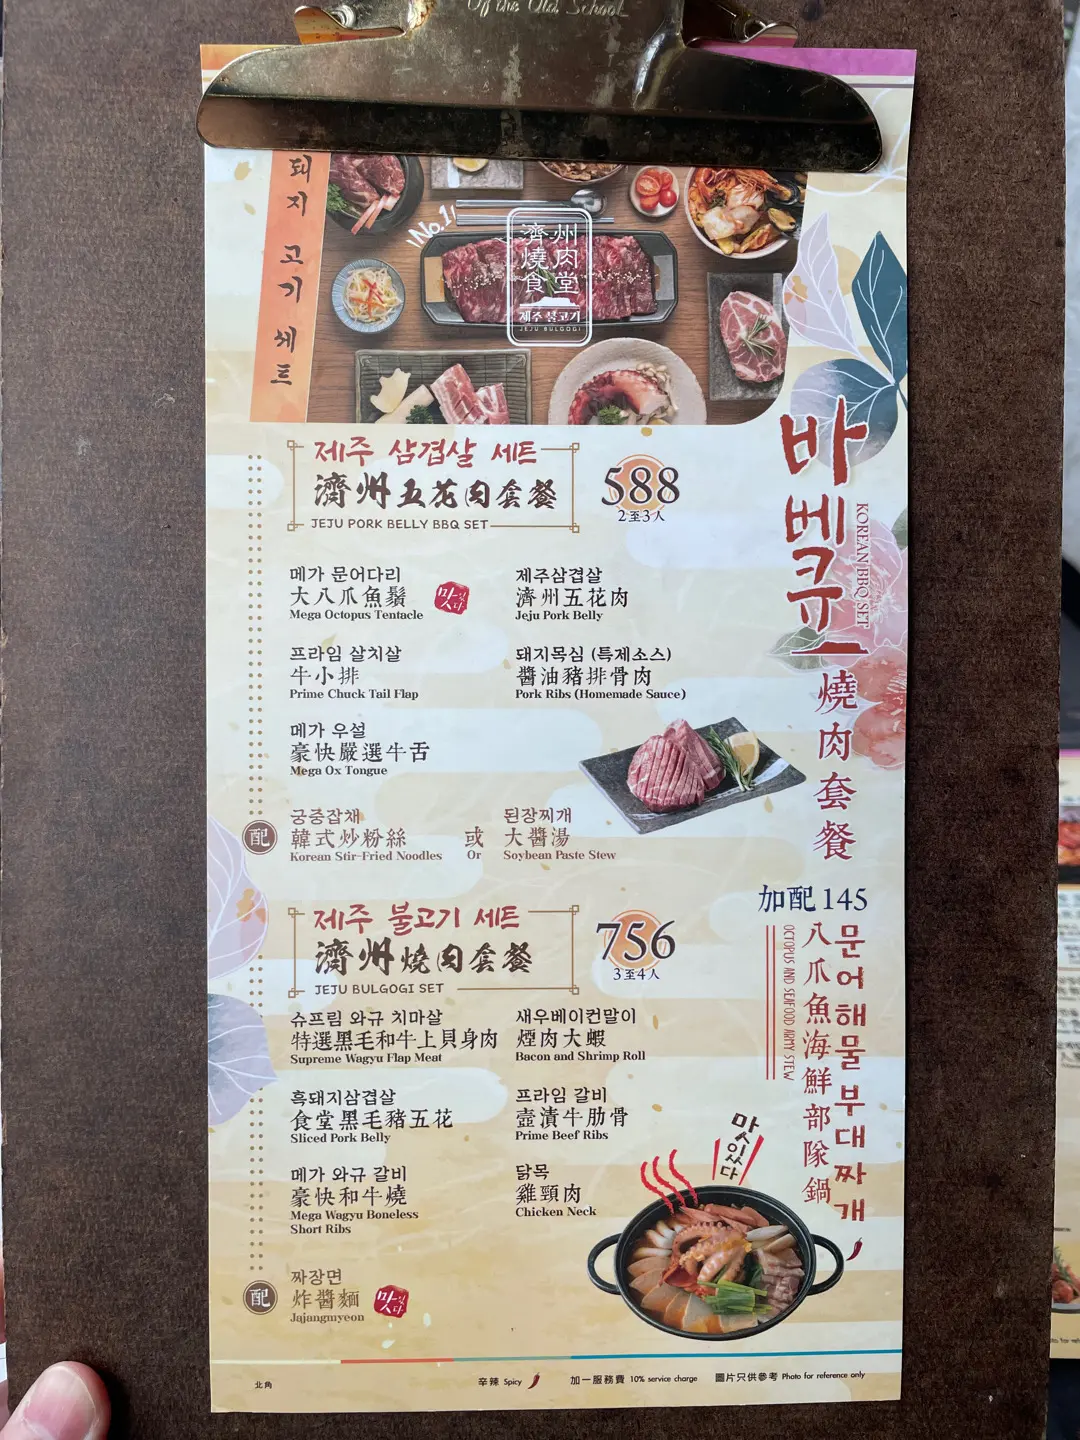 Of the Old School
돼지 고기 세트
No.1
濟州
燒肉
食堂
제주 불고기
JEJU BULGOGI
바베큐
KOREAN BBQ SET
燒肉套餐
제주 삼겹살 세트
濟州五花肉套餐
JEJU PORK BELLY BBQ SET
588
2至3人
메가 문어다리
大八爪魚鬚
Mega Octopus Tentacle
맛있다
제주삼겹살
濟州五花肉
Jeju Pork Belly
프라임 살치살
牛小排
Prime Chuck Tail Flap
돼지목심 (특제소스)
醬油豬排骨肉
Pork Ribs (Homemade Sauce)
메가 우설
豪快嚴選牛舌
Mega Ox Tongue
配
궁중잡채
韓式炒粉絲
Korean Stir-Fried Noodles
或
Or
된장찌개
大醬湯
Soybean Paste Stew
제주 불고기 세트
濟州燒肉套餐
JEJU BULGOGI SET
756
3至4人
슈프림 와규 치마살
特選黑毛和牛上貝身肉
Supreme Wagyu Flap Meat
새우베이컨말이
煙肉大蝦
Bacon and Shrimp Roll
흑돼지삼겹살
食堂黑毛豬五花
Sliced Pork Belly
프라임 갈비
壺漬牛肋骨
Prime Beef Ribs
메가 와규 갈비
豪快和牛燒
Mega Wagyu Boneless
Short Ribs
닭목
雞頸肉
Chicken Neck
配
짜장면
炸醬麵
Jajangmyeon
맛있다
加配 145
문어해물부대찌개
八爪魚海鮮部隊鍋
OCTOPUS AND SEAFOOD ARMY STEW
맛있다
北角
辛辣 Spicy
加一服務費 10% service charge
圖片只供參考 Photo for reference only